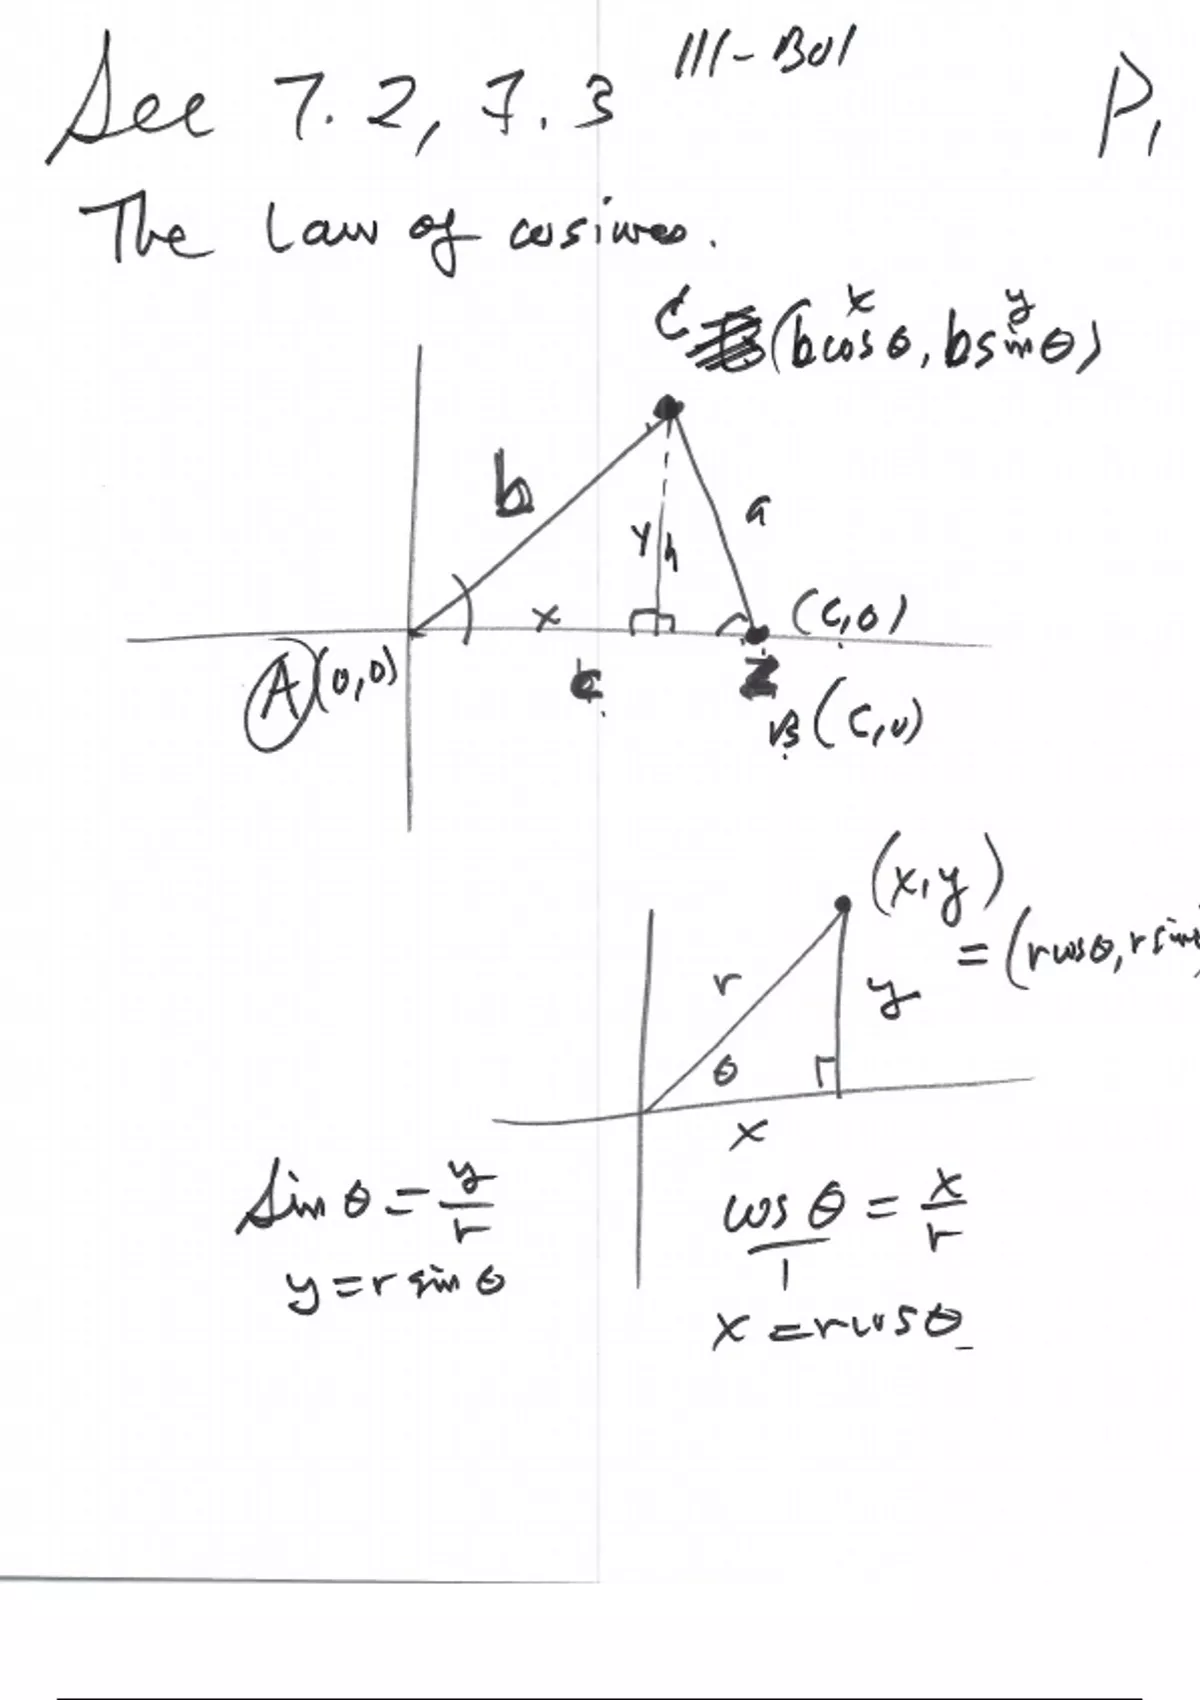 See 7.2, 7.3 111-B01 P1
The Law of cosines.
C (b cos θ, b sin θ)
x y
b
a
y h
x
(c,0)
A (0,0)
c
B (c,0)
(x,y)
= (r cos θ, r sin
r
y
θ
x
sin θ = y/r
cos θ/1 = x/r
y = r sin θ
x = r cos θ